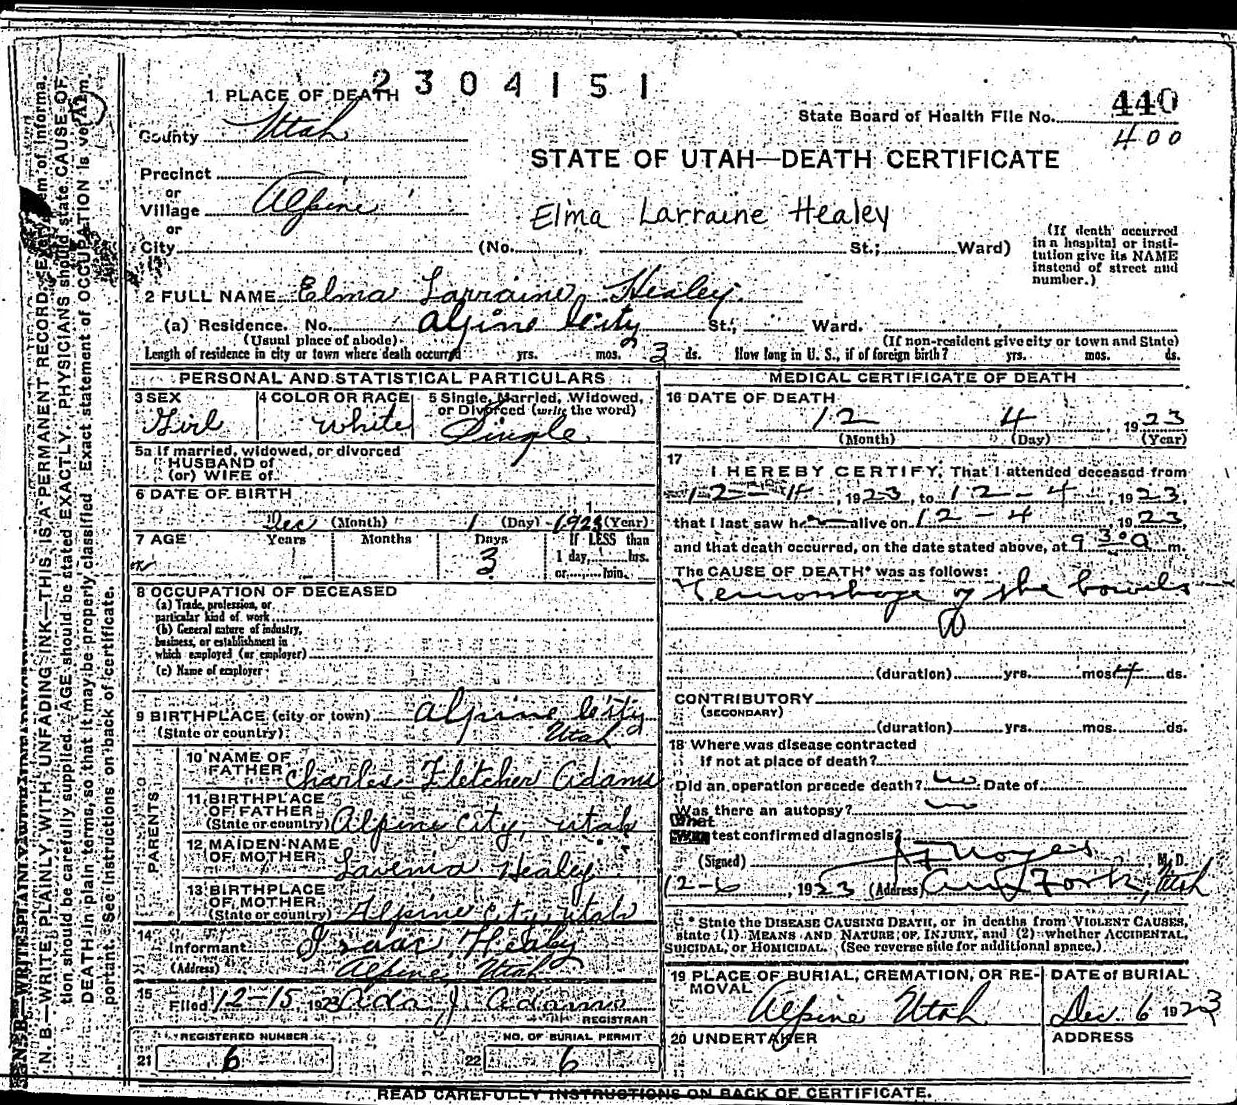 2304151
1 PLACE OF DEATH
County Utah
State Board of Health File No. 440
400
STATE OF UTAH—DEATH CERTIFICATE
Precinct
or
Village Alpine
or
City (No. , St.; Ward)
Elma Larraine Healey
(If death occurred in a hospital or institution give its NAME instead of street and number.)
2 FULL NAME Elma Larraine Healey
(a) Residence. No. Alpine City St., Ward.
(Usual place of abode) (If non-resident give city or town and State)
Length of residence in city or town where death occurred yrs. mos. 3 ds. How long in U. S., if of foreign birth? yrs. mos. ds.
PERSONAL AND STATISTICAL PARTICULARS
3 SEX 4 COLOR OR RACE 5 Single, Married, Widowed, or Divorced (write the word)
Girl White Single
5a If married, widowed, or divorced
HUSBAND of
(or) WIFE of
6 DATE OF BIRTH
Dec (Month) 1 (Day) 1923 (Year)
7 AGE Years Months Days If LESS than
3 1 day, hrs.
or min.
8 OCCUPATION OF DECEASED
(a) Trade, profession, or
particular kind of work
(b) General nature of industry,
business, or establishment in
which employed (or employer)
(c) Name of employer
9 BIRTHPLACE (city or town) Alpine City
(State or country) Utah
PARENTS
10 NAME OF FATHER Charles Fletcher Adams
11 BIRTHPLACE OF FATHER
(State or country) Alpine City, Utah
12 MAIDEN NAME OF MOTHER
Healey
13 BIRTHPLACE OF MOTHER
(State or country) Alpine City, Utah
14 Informant Isaac Healey
(Address) Alpine, Utah
15 Filed 12-15 1923 Ada J. Adams
REGISTRAR
REGISTERED NUMBER NO. OF BURIAL PERMIT
21 6 22 6
MEDICAL CERTIFICATE OF DEATH
16 DATE OF DEATH
12 4, 1923
(Month) (Day) (Year)
17
I HEREBY CERTIFY, That I attended deceased from
12-4, 1923, to 12-4, 1923,
that I last saw h alive on 12-4 1923
and that death occurred, on the date stated above, at 9 30 a m.
The CAUSE OF DEATH* was as follows:
Hemorrhage of the bowels
(duration) yrs. mos. 4 ds.
CONTRIBUTORY
(SECONDARY)
(duration) yrs. mos. ds.
18 Where was disease contracted
If not at place of death?
Did an operation precede death? no Date of
Was there an autopsy? no
What
test confirmed diagnosis?
(Signed) Noyes M. D.
12-6, 1923 (Address) Am Fork, Utah
* State the DISEASE CAUSING DEATH, or in deaths from VIOLENT CAUSES,
state (1) MEANS AND NATURE OF INJURY, and (2) whether ACCIDENTAL,
SUICIDAL, or HOMICIDAL. (See reverse side for additional space.)
19 PLACE OF BURIAL, CREMATION, OR REMOVAL DATE of BURIAL
Alpine Utah Dec. 6 1923
20 UNDERTAKER ADDRESS
READ CAREFULLY INSTRUCTIONS ON BACK OF CERTIFICATE.
N. B.—WRITE PLAINLY, WITH UNFADING INK—THIS IS A PERMANENT RECORD. Every item of informa-
tion should be carefully supplied. AGE should be stated EXACTLY. PHYSICIANS should state CAUSE OF
DEATH in plain terms, so that it may be properly classified. Exact statement of OCCUPATION is very im-
portant. (See instructions on back of certificate.)